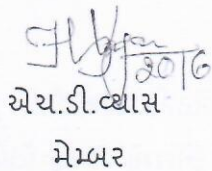 2016
એચ.ડી.વ્યાસ
મેમ્બર